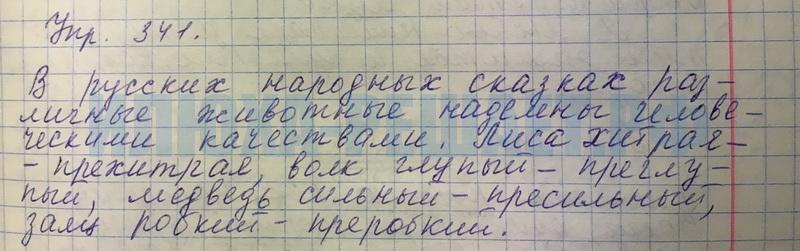 Упр. 341.
В русских народных сказках раз-
личные животные наделены челове-
ческими качествами. Лиса хитрая-
- прехитрая, волк глупый - преглу-
пый, медведь сильный - пресильный,
заяц робкий - преробкий.